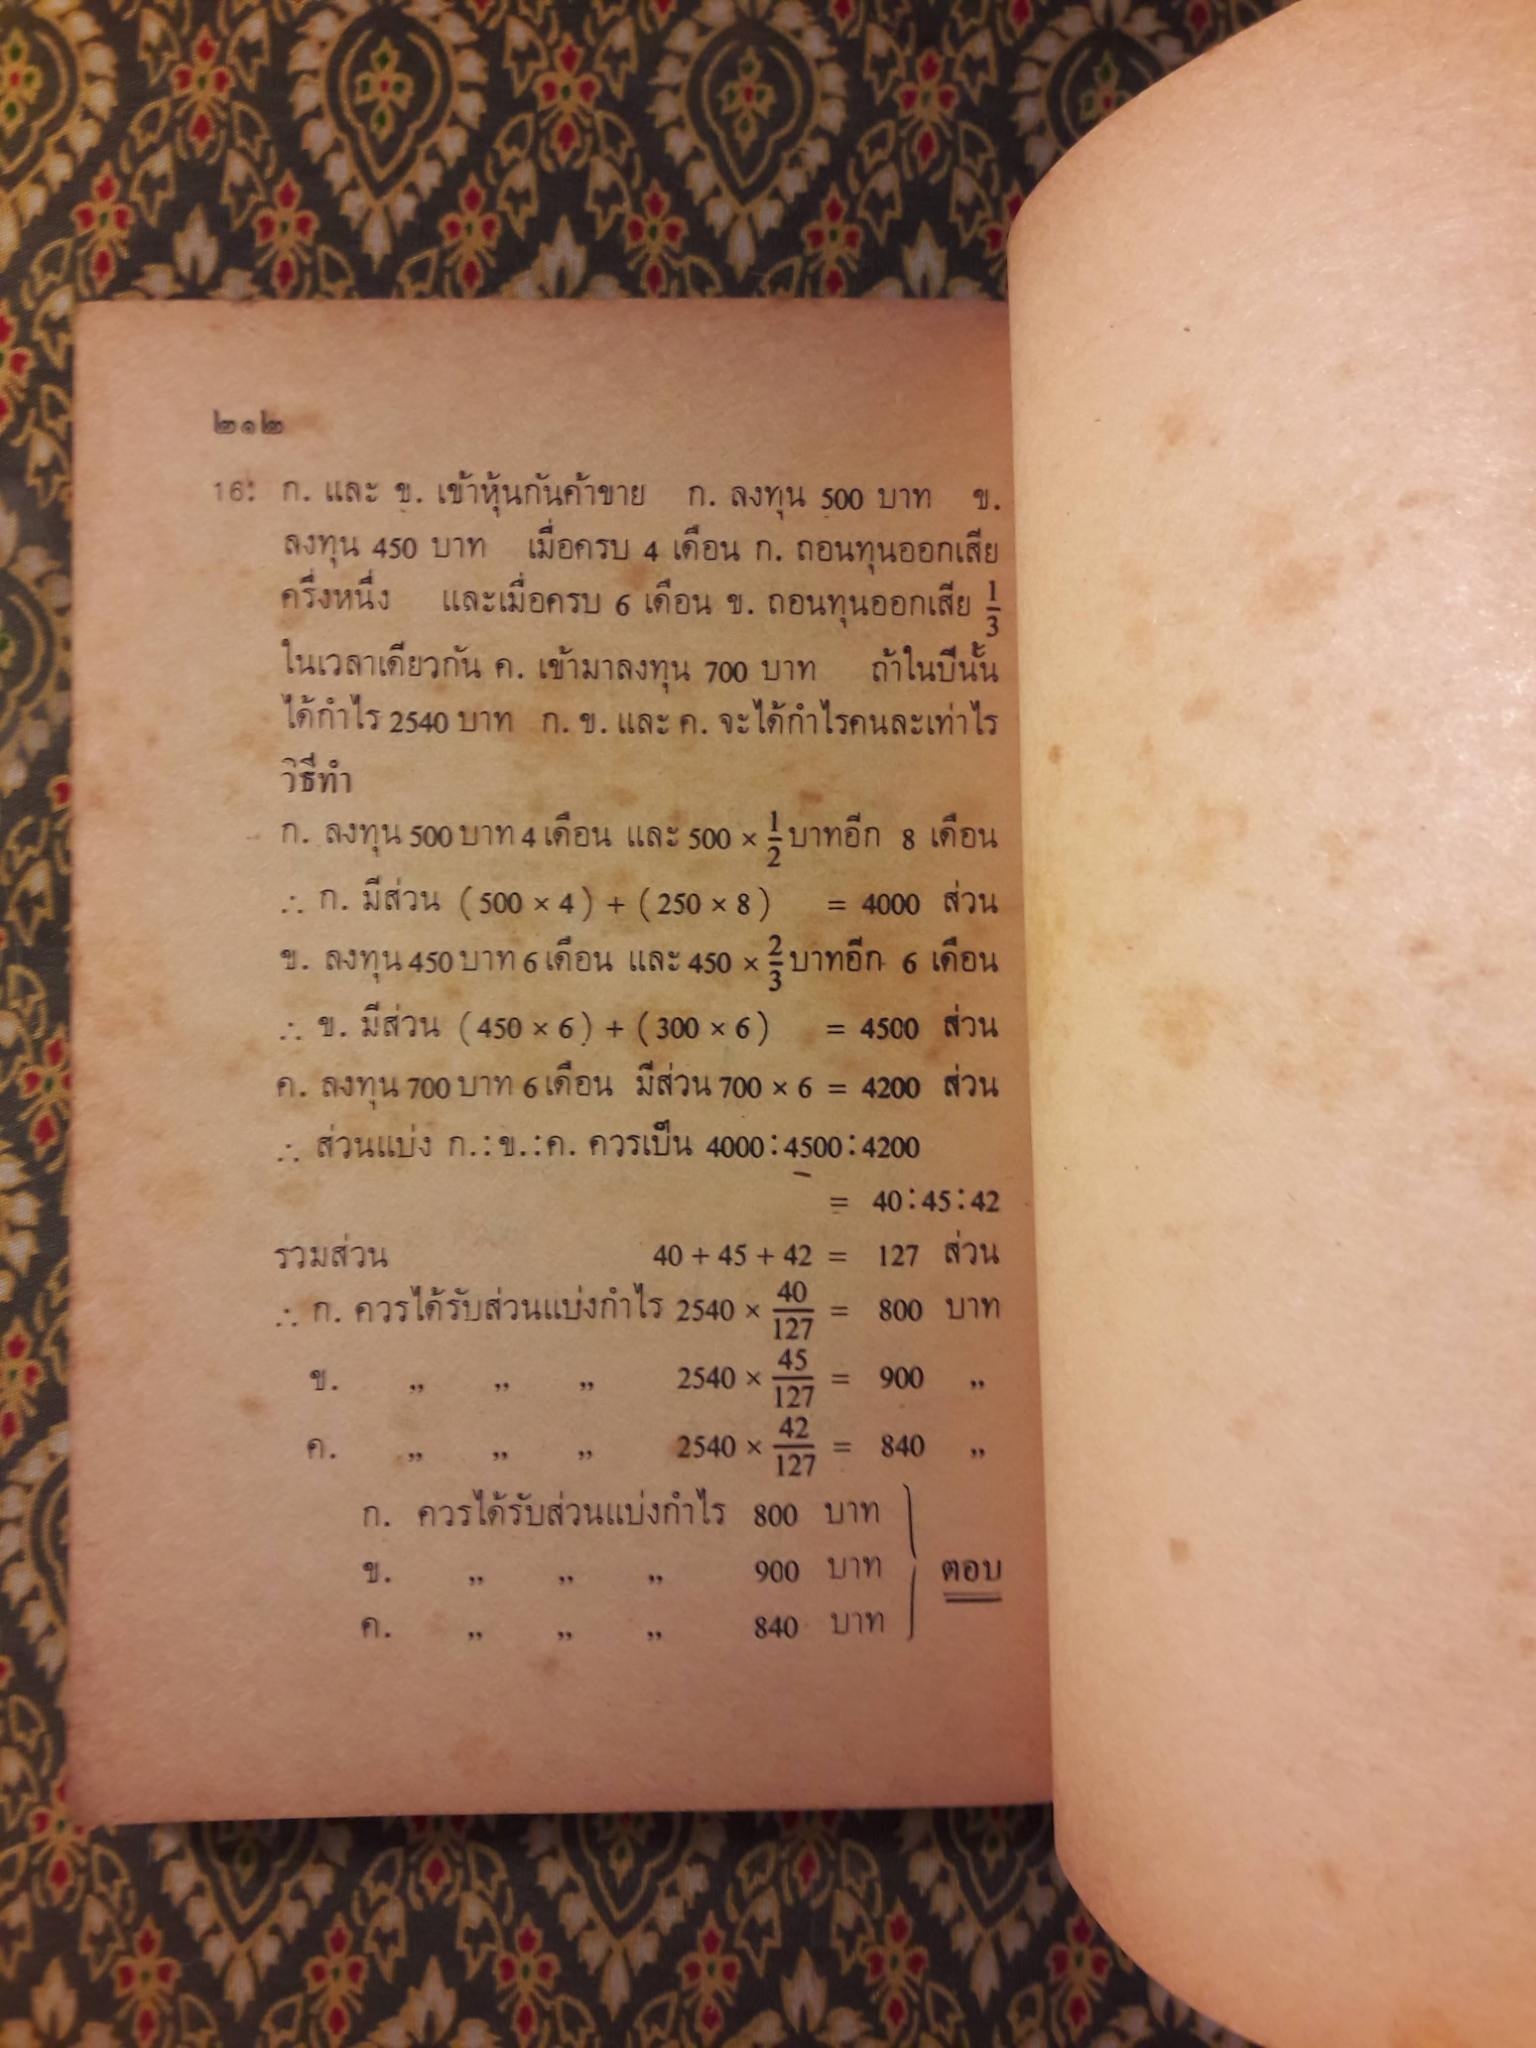 ๒๑๒
16. ก. และ ข. เข้าหุ้นกันค้าขาย ก. ลงทุน 500 บาท ข.
ลงทุน 450 บาท เมื่อครบ 4 เดือน ก. ถอนทุนออกเสีย
ครึ่งหนึ่ง และเมื่อครบ 6 เดือน ข. ถอนทุนออกเสีย 1/3
ในเวลาเดียวกัน ค. เข้ามาลงทุน 700 บาท ถ้าในปีนั้น
ได้กำไร 2540 บาท ก. ข. และ ค. จะได้กำไรคนละเท่าไร
วิธีทำ
ก. ลงทุน 500 บาท 4 เดือน และ 500 × 1/2 บาทอีก 8 เดือน
∴ ก. มีส่วน (500 × 4) + (250 × 8) = 4000 ส่วน
ข. ลงทุน 450 บาท 6 เดือน และ 450 × 2/3 บาทอีก 6 เดือน
∴ ข. มีส่วน (450 × 6) + (300 × 6) = 4500 ส่วน
ค. ลงทุน 700 บาท 6 เดือน มีส่วน 700 × 6 = 4200 ส่วน
∴ ส่วนแบ่ง ก.:ข.:ค. ควรเป็น 4000:4500:4200
= 40:45:42
รวมส่วน 40 + 45 + 42 = 127 ส่วน
∴ ก. ควรได้รับส่วนแบ่งกำไร 2540 × 40/127 = 800 บาท
ข. ,, ,, ,, 2540 × 45/127 = 900 ,,
ค. ,, ,, ,, 2540 × 42/127 = 840 ,,
ก. ควรได้รับส่วนแบ่งกำไร 800 บาท
ข. ,, ,, ,, 900 บาท ตอบ
ค. ,, ,, ,, 840 บาท